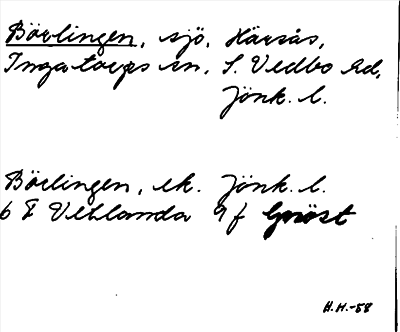 Börlingen, sjö, Härsås,
Ingatorps sn, S. Vedbo hd,
Jönk. l.
Börlingen, ek. Jönk. l.
6 F Vetlanda 9 f
H.H.-58